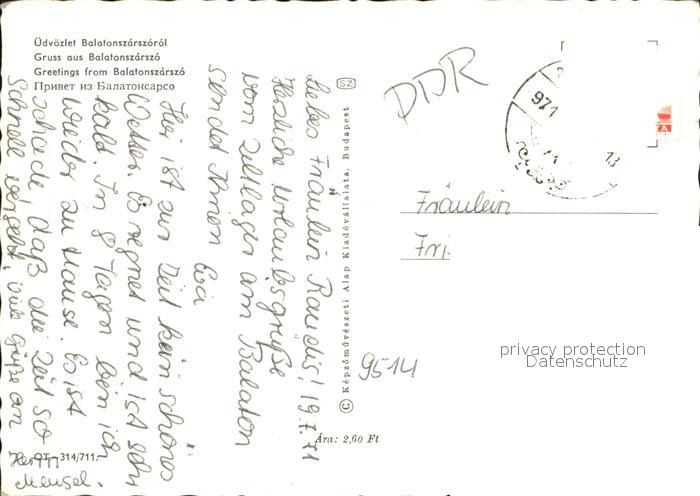 Üdvözlet Balatonszárszóról
Gruss aus Balatonszárszó
Greetings from Balatonszárszó
Привет из Балатонсарсо
Liebes Fräulein ! 19.7.71
Herzliche Urlaubsgrüße
vom Zeltlager am Balaton
sendet Ihnen Eva
Hei ist zur Zeit kein schönes
Wetter. Es regnet und ist sehr
kalt. In 8 Tagen bin ich
wieder zu Hause. Es ist
schade, daß die Zeit so
schnell vergeht, viele Grüße an
Herrn
Mengel.
OT—314/711.
SZ
© Képzőművészeti Alap Kiadóvállalata, Budapest
Ára: 2,60 Ft
DDR
971
13
Fräulein
Fri
9514
privacy protection
Datenschutz